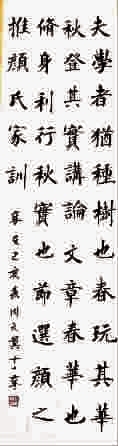 夫學者猶種樹也春玩其華
秋登其實講論文章春華也
脩身利行秋實也節選顏之
推顏氏家訓 己亥